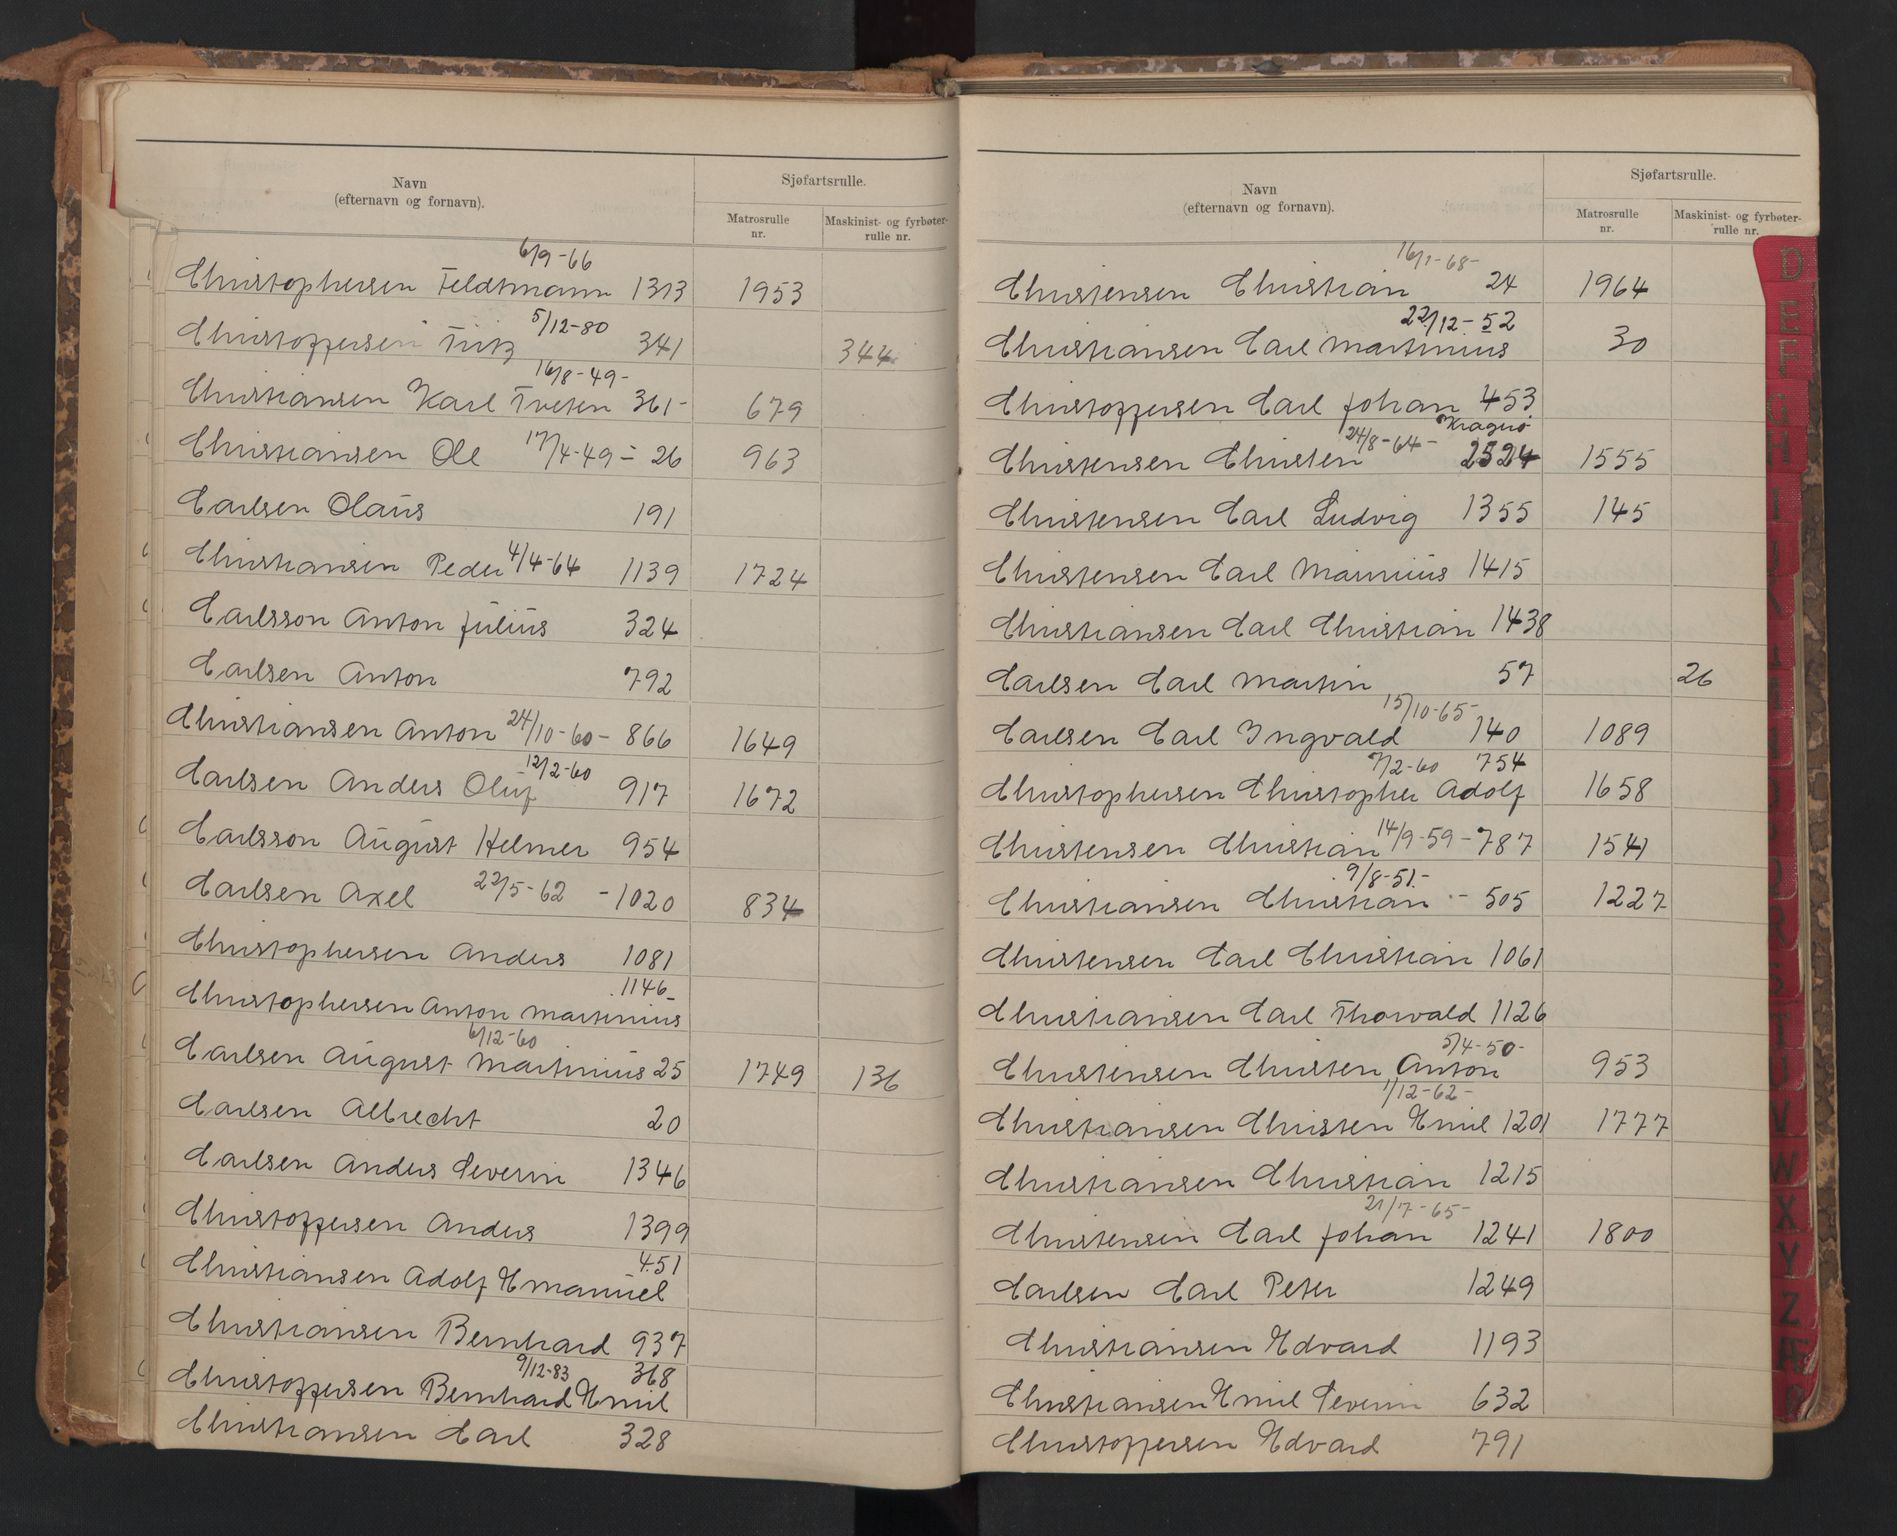 Navn
(efternavn og fornavn).
Sjøfartsrulle.
Matrosrulle nr.
Maskinist- og fyrbøter-rulle nr.
6/9-66
Christophersen Feldtmann 1313 1953
5/12-80
Christoffersen Fritz 341 344
16/8-49-
Christiansen Karl Tveten 361- 679
Christiansen Ole 17/4-49- 26 963
Carlsen Olaus 191
Christiansen Peder 4/4-64 1139 1724
Carlsson Anton Julius 324
Carlsen Anton 792
Christiansen Anton 24/10-60- 866 1649
12/2-60
Carlsen Anders Oluf 917 1672
Carlsson August Helmer 954
Carlsen Axel 22/5-62 -1020 834
Christophersen Anders 1081
1146-
Christophersen Anton Martinius
6/12-60
Carlsen August Martinius 25 1749 136
Carlsen Albrecht 20
Carlsen Anders Severin 1346
Christoffersen Anders 1399
451
Christiansen Adolf Emanuel
Christiansen Bernhard 937
9/12-83 368
Christoffersen Bernhard Emil
Christiansen Carl 328
Navn
(efternavn og fornavn).
Sjøfartsrulle.
Matrosrulle nr.
Maskinist- og fyrbøter-rulle nr.
16/1-68-
Christensen Christian 24 1964
22/12-52
Christiansen Carl Martinius 30
Christoffersen Carl Johan 453
24/8-64- Kragerø
Christensen Christen 2524 1555
Christensen Carl Ludvig 1355 145
Christensen Carl Marinius 1415
Christiansen Carl Christian 1438
Carlsen Carl Martin 57 26
15/10-65-
Carlsen Carl Ingvald 140 1089
7/2-60 754
Christophersen Christopher Adolf 1658
Christensen Christian 14/9-59-787 1541
9/8-51-
Christiansen Christian - 505 1227
Christensen Carl Christian 1061
Christiansen Carl Thorvald 1126
5/4-50-
Christensen Christen Anton 953
1/12-62-
Christiansen Christen Emil 1201 1777
Christiansen Christian 1215
21/7-65-
Christensen Carl Johan 1241 1800
Carlsen Carl Peter 1249
Christiansen Edvard 1193
Christiansen Emil Severin 632
Christoffersen Edvard 791
D
E
F
G
H
I
J
Q
R
S
T
U
V
W
X
Y
Z
Æ
Ø